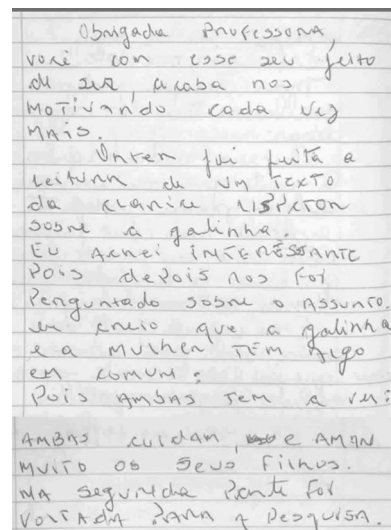 Obrigada Professora,
você com esse seu jeito
de ser, acaba nos
MOTIVANDO cada vez
MAIS.
Ontem foi feita a
Leitura de um TEXTO
da CLARICE LISPECTON
SOBRE a galinha.
EU Achei INTERESSANTE
POIS depois nos FOI
Perguntado sobre o ASSUNTO,
eu creio que a galinha
e a MULHER TEM Algo
em comum:
Pois AMBAS TEM a ver:
AMBAS cuidam, e AMAN
MUITO OS Seus Filhos.
NA segunda Parte FOI
VOLTADA PARA A PESQUISA